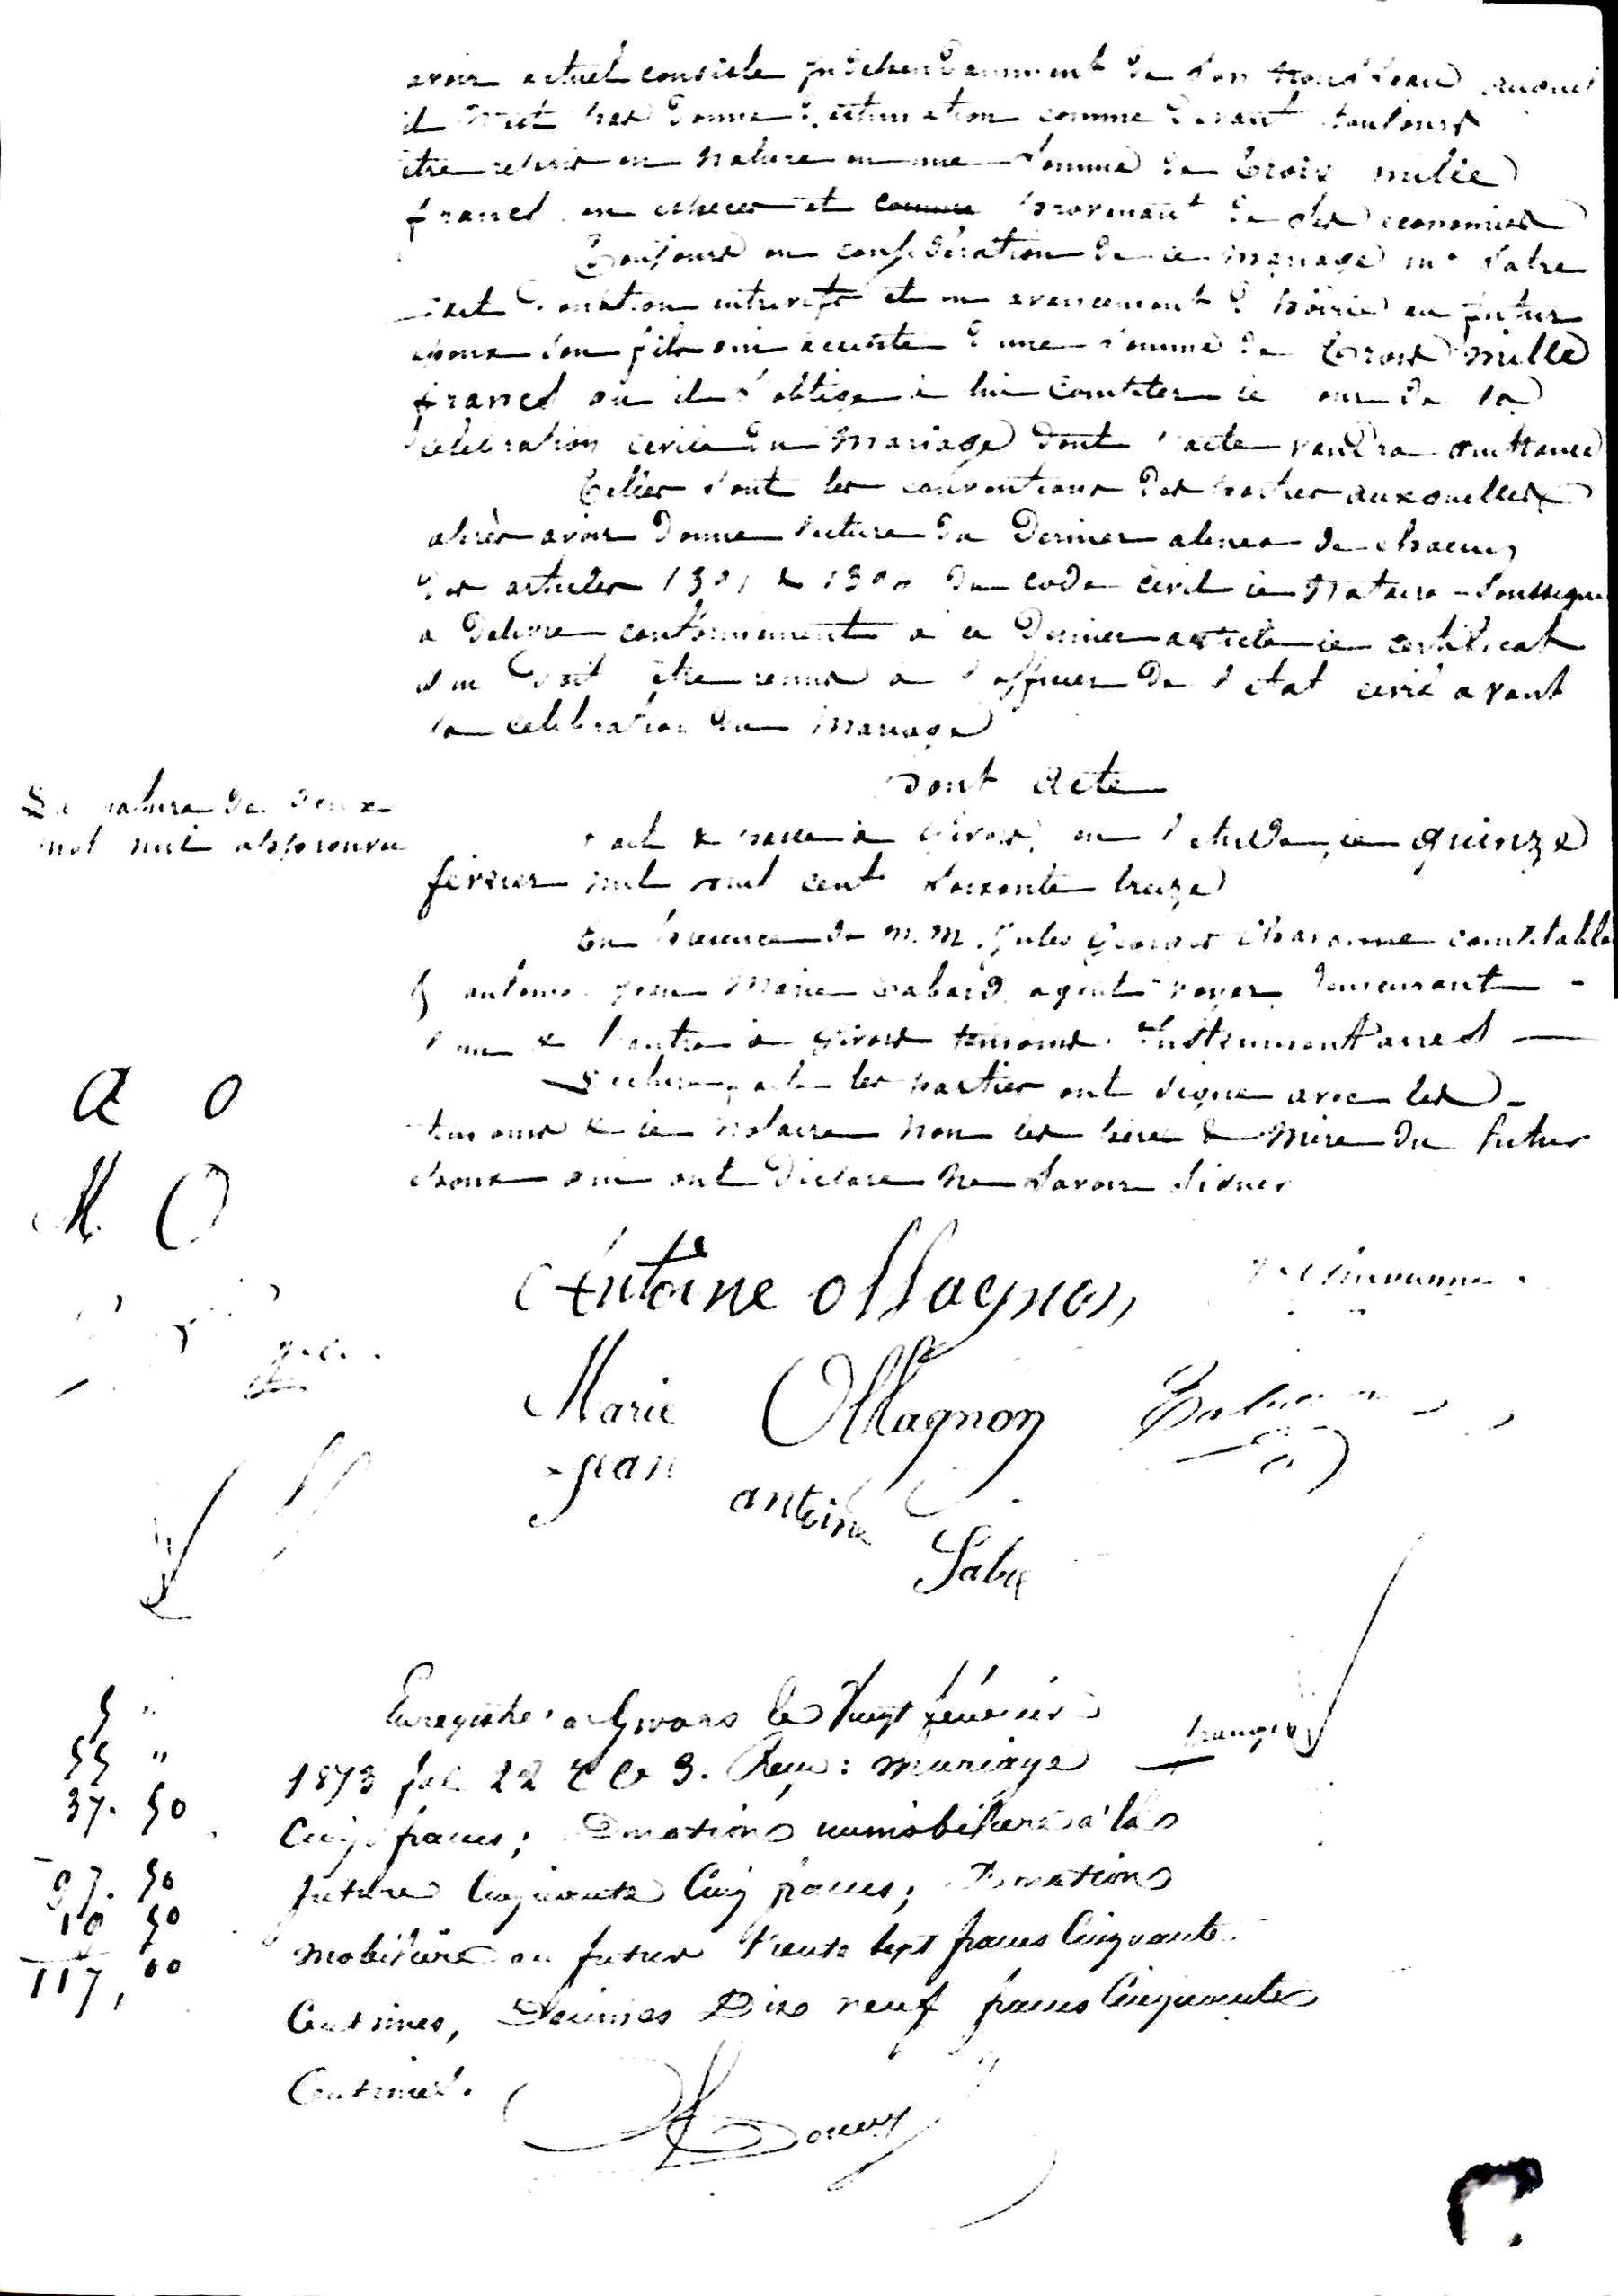 avoir actuel consiste indépendamment de son trousseau auquel
il n'est pas donné d'estimation comme devant toujours
être repris en nature en une somme de trois mille
francs en espèces et comme provenant de ses économies
Toujours en considération de ce mariage mr Sabre
fait donation entrevifs et en avancement d'hoirie au futur
époux son fils qui accepte d'une somme de trois mille
francs qu'il s'oblige à lui compter le jour de la
célébration civile du mariage dont l'acte vaudra quittance
Telles sont les conventions des parties auxquelles
après avoir donné lecture du dernier alinéa de chacun
des articles 1391 & 1394 du code civil le notaire soussigné
a délivré conformément à ce dernier article le certificat
qui doit être remis à l'officier de l'état civil avant
la célébration du mariage
Dont Acte
La rature de deux
mot nul approuvée
Fait & passé à Givors, en l'étude, le quinze
février mil huit cent soixante treize
En présence de M.M. Jules Georges Charvonne comptable
& antoine jean Marie agent voyer demeurant
l'un & l'autre à Givors témoins instrumentaires
Lecture faite les parties ont signé avec les
témoins & le notaire non les père & mère du futur
époux qui ont déclaré ne savoir signer
A O
M. O
Antoine ollagnon
Marie Ollagnon
J. C.
jean antoine Sabre
Enregistré à Givors le Vingt février
1873 fol 22 C 3. Reçu : mariage
Cinq francs ; Donation immobilière à la
future Cinquante Cinq francs ; Donation
mobilière au futur trente sept francs Cinquante
Centimes, Décimes Dix neuf francs Cinquante
Centimes.
5 "
55 "
37. 50
97. 50
19 50
117, 00